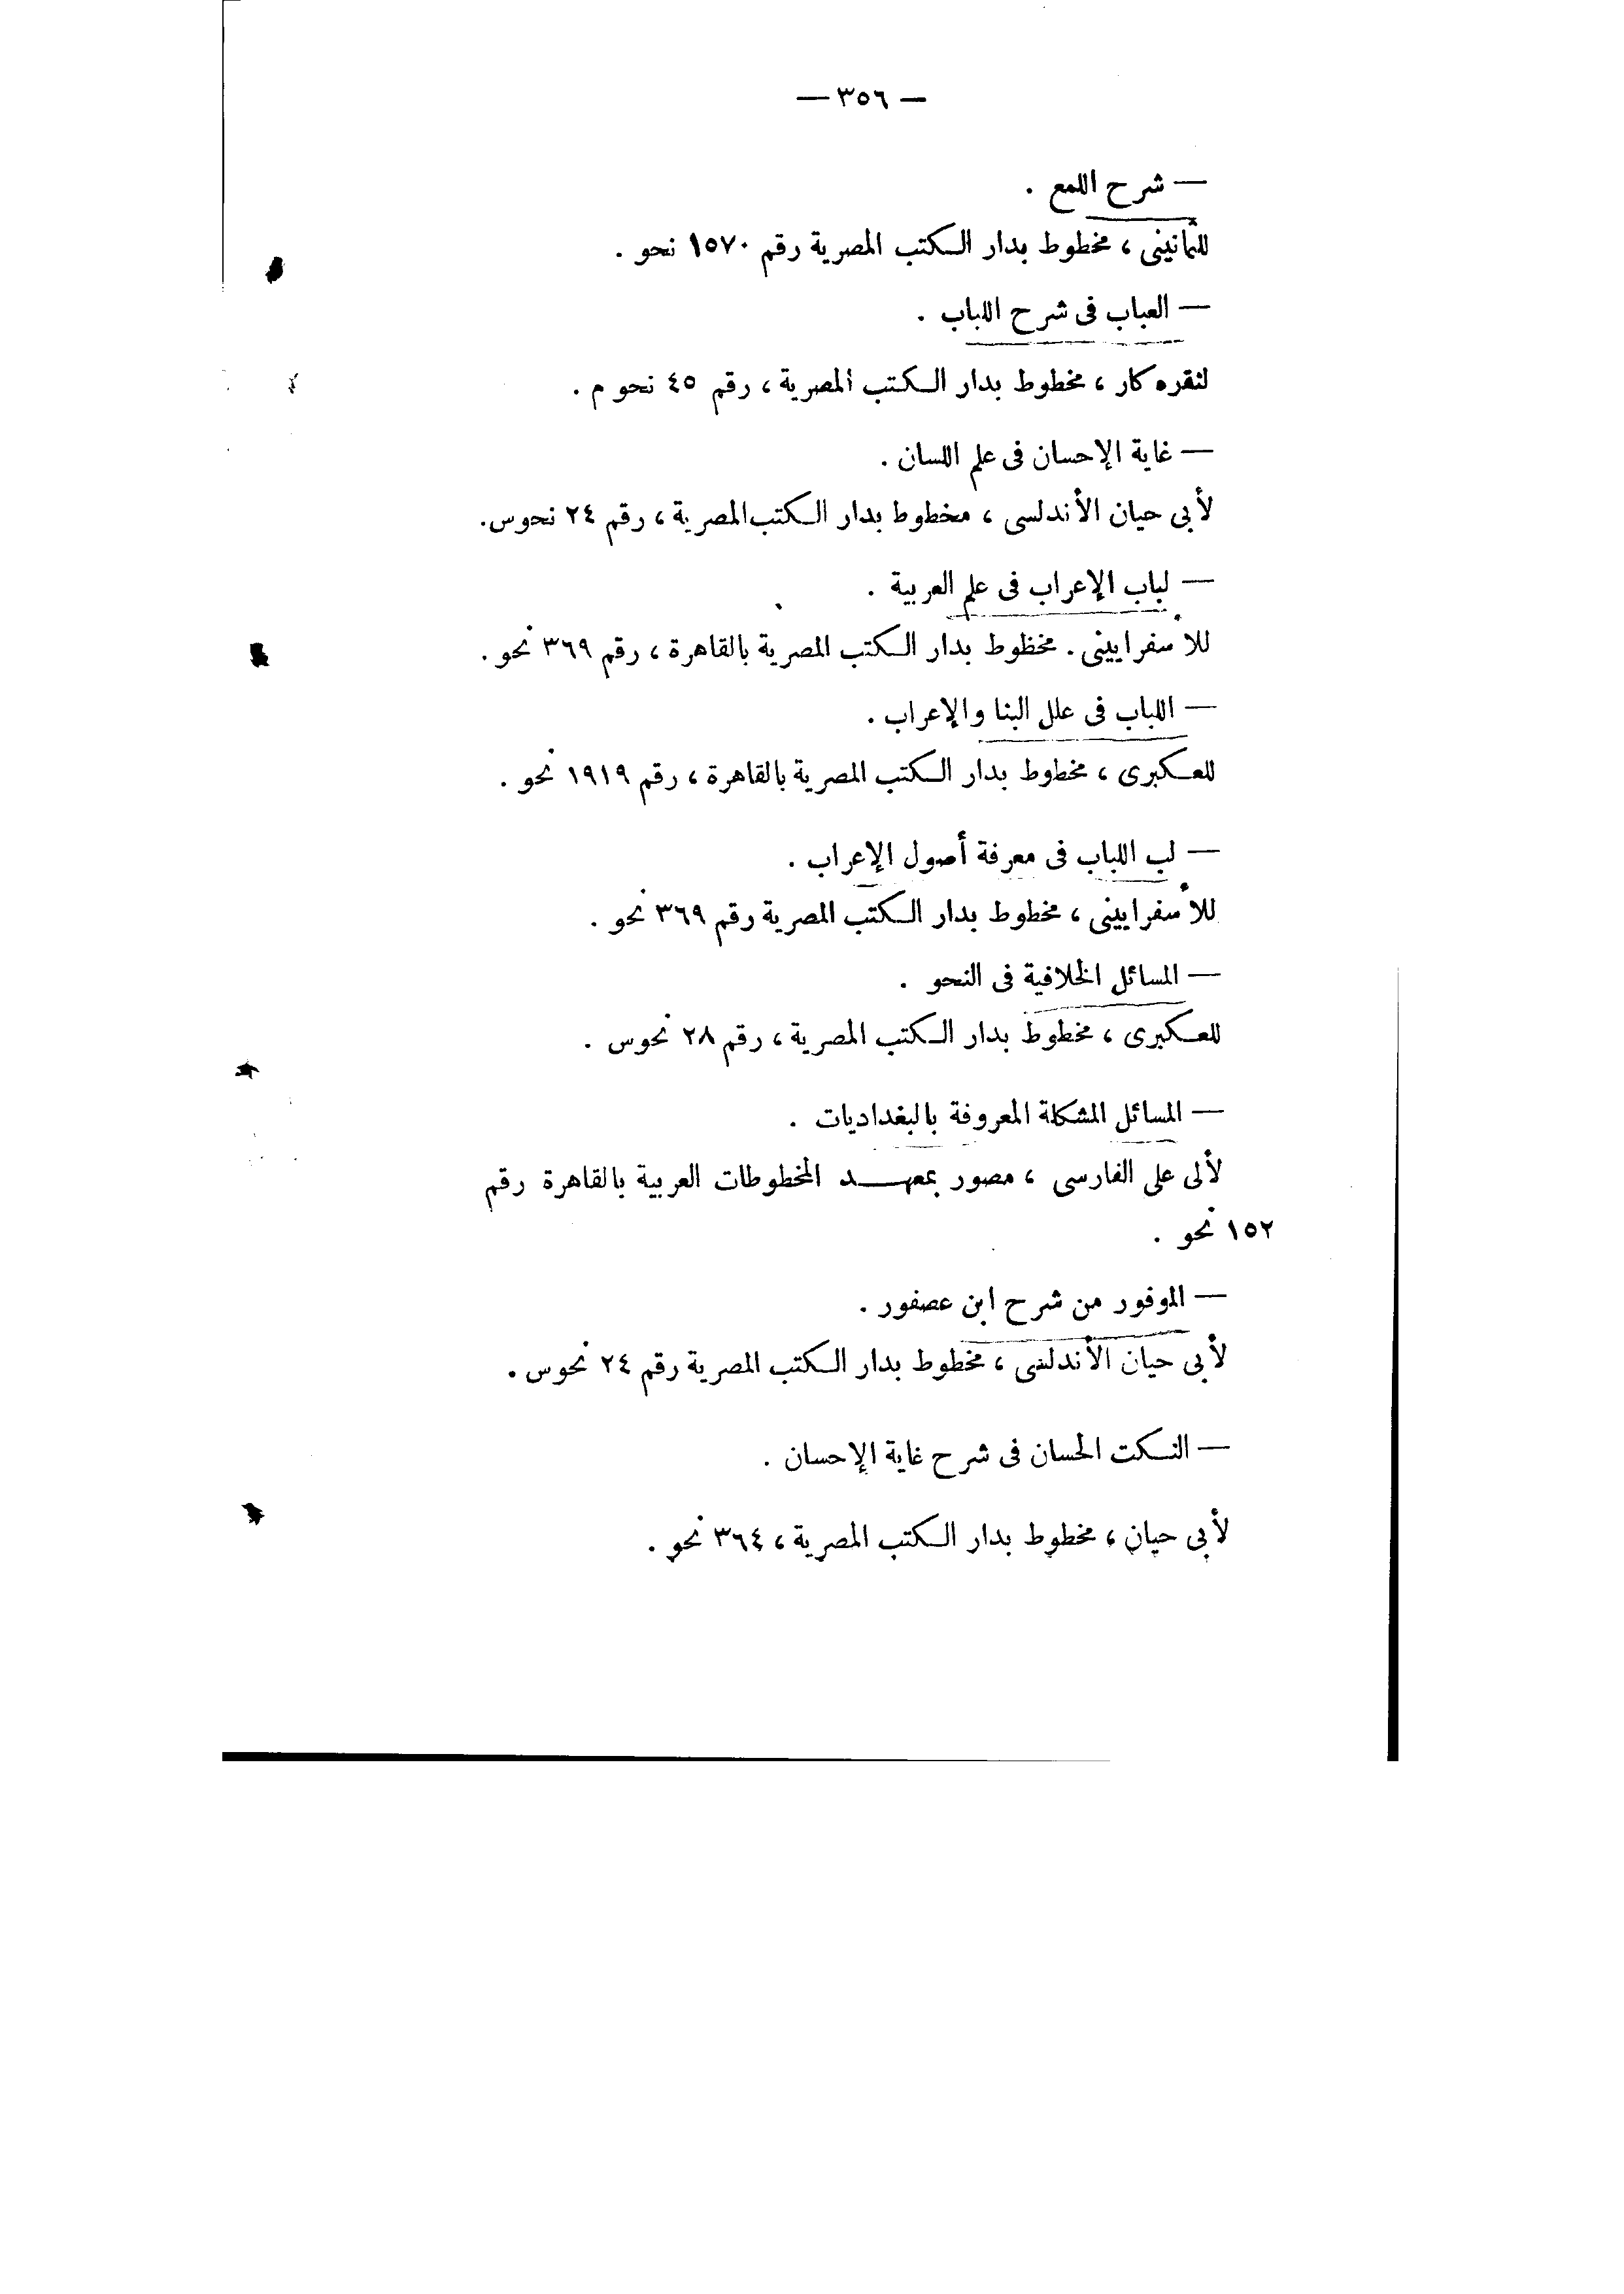 — ٣٥٦ —
— شرح اللمع .
للثمانينى ، مخطوط بدار الكتب المصرية رقم ١٥٧٠ نحو .
— العباب فى شرح اللباب .
لنقره كار ، مخطوط بدار الكتب المصرية ، رقم ٤٥ نحو م .
— غاية الإحسان فى علم اللسان .
لأبى حيان الأندلسى ، مخطوط بدار الكتب المصرية ، رقم ٢٤ نحوس.
— لباب الإعراب فى علم العربية .
للأسفرايينى . مخظوط بدار الكتب المصرية بالقاهرة ، رقم ٣٦٩ نحو .
— اللباب فى علل البنا والإعراب .
للعكبرى ، مخطوط بدار الكتب المصرية بالقاهرة ، رقم ١٩١٩ نحو .
— لب اللباب فى معرفة أصول الإعراب .
للأسفرايينى ، مخطوط بدار الكتب المصرية رقم ٣٦٩ نحو .
— المسائل الخلافية فى النحو .
للعكبرى ، مخطوط بدار الكتب المصرية ، رقم ٢٨ نحوس .
— المسائل المشكلة المعروفة بالبغداديات .
لألى على الفارسى ، مصور بمعهد المخطوطات العربية بالقاهرة رقم
١٥٢ نحو .
— الموفور من شرح ابن عصفور .
لأبى حيان الأندلسى ، مخطوط بدار الكتب المصرية رقم ٢٤ نحوس .
— النكت الحسان فى شرح غاية الإحسان .
لأبى حيان ، مخطوط بدار الكتب المصرية ، ٣٦٤ نحو .